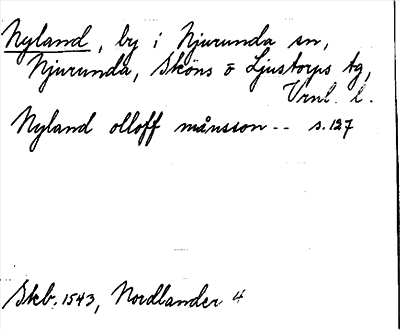 Nyland, by i Njurunda sn,
Njurunda, Sköns & Ljustorps tg,
Vrnl. l.
Nyland olloff månsson -- s. 127
Skb. 1543, Nordlander 4